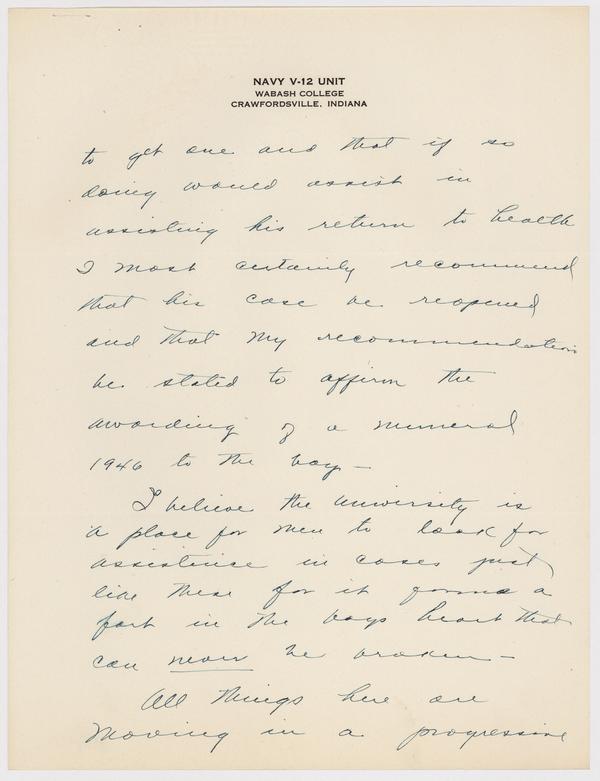 NAVY V-12 UNIT
WABASH COLLEGE
CRAWFORDSVILLE, INDIANA
to get one and that if so
doing would assist in
assisting his return to health
I most certainly recommend
that his case be reopened
and that my recommendation
be stated to affirm the
awarding of a numeral
1946 to the boy —
I believe the university is
a place for men to look for
assistance in cases just
like these for it forms a
fort in the boys heart that
can never be broken —
All things here are
moving in a progressive